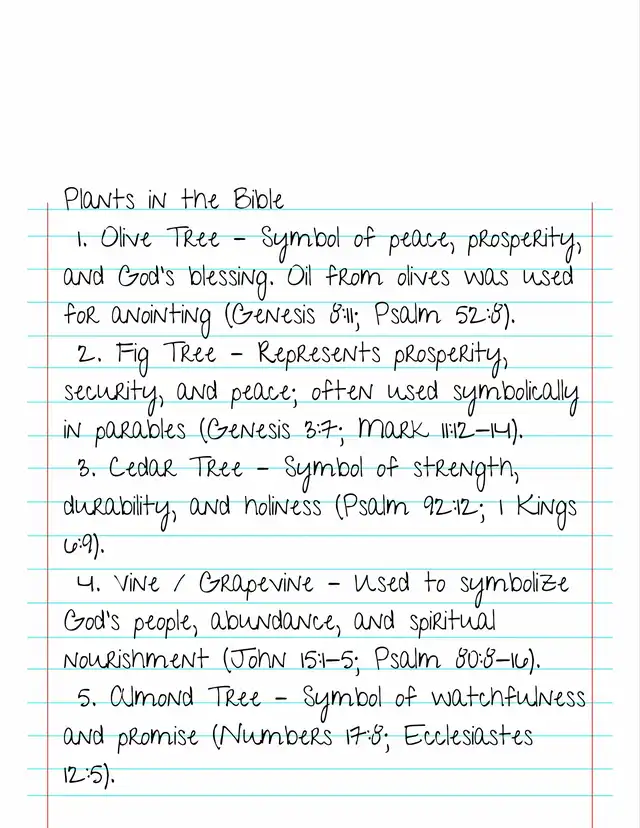 Plants in the Bible
1. Olive Tree – Symbol of peace, prosperity,
and God's blessing. Oil from olives was used
for anointing (Genesis 8:11; Psalm 52:8).
2. Fig Tree – Represents prosperity,
security, and peace; often used symbolically
in parables (Genesis 3:7; Mark 11:12–14).
3. Cedar Tree – Symbol of strength,
durability, and holiness (Psalm 92:12; 1 Kings
6:9).
4. Vine / Grapevine – Used to symbolize
God's people, abundance, and spiritual
nourishment (John 15:1–5; Psalm 80:8–16).
5. Almond Tree – Symbol of watchfulness
and promise (Numbers 17:8; Ecclesiastes
12:5).